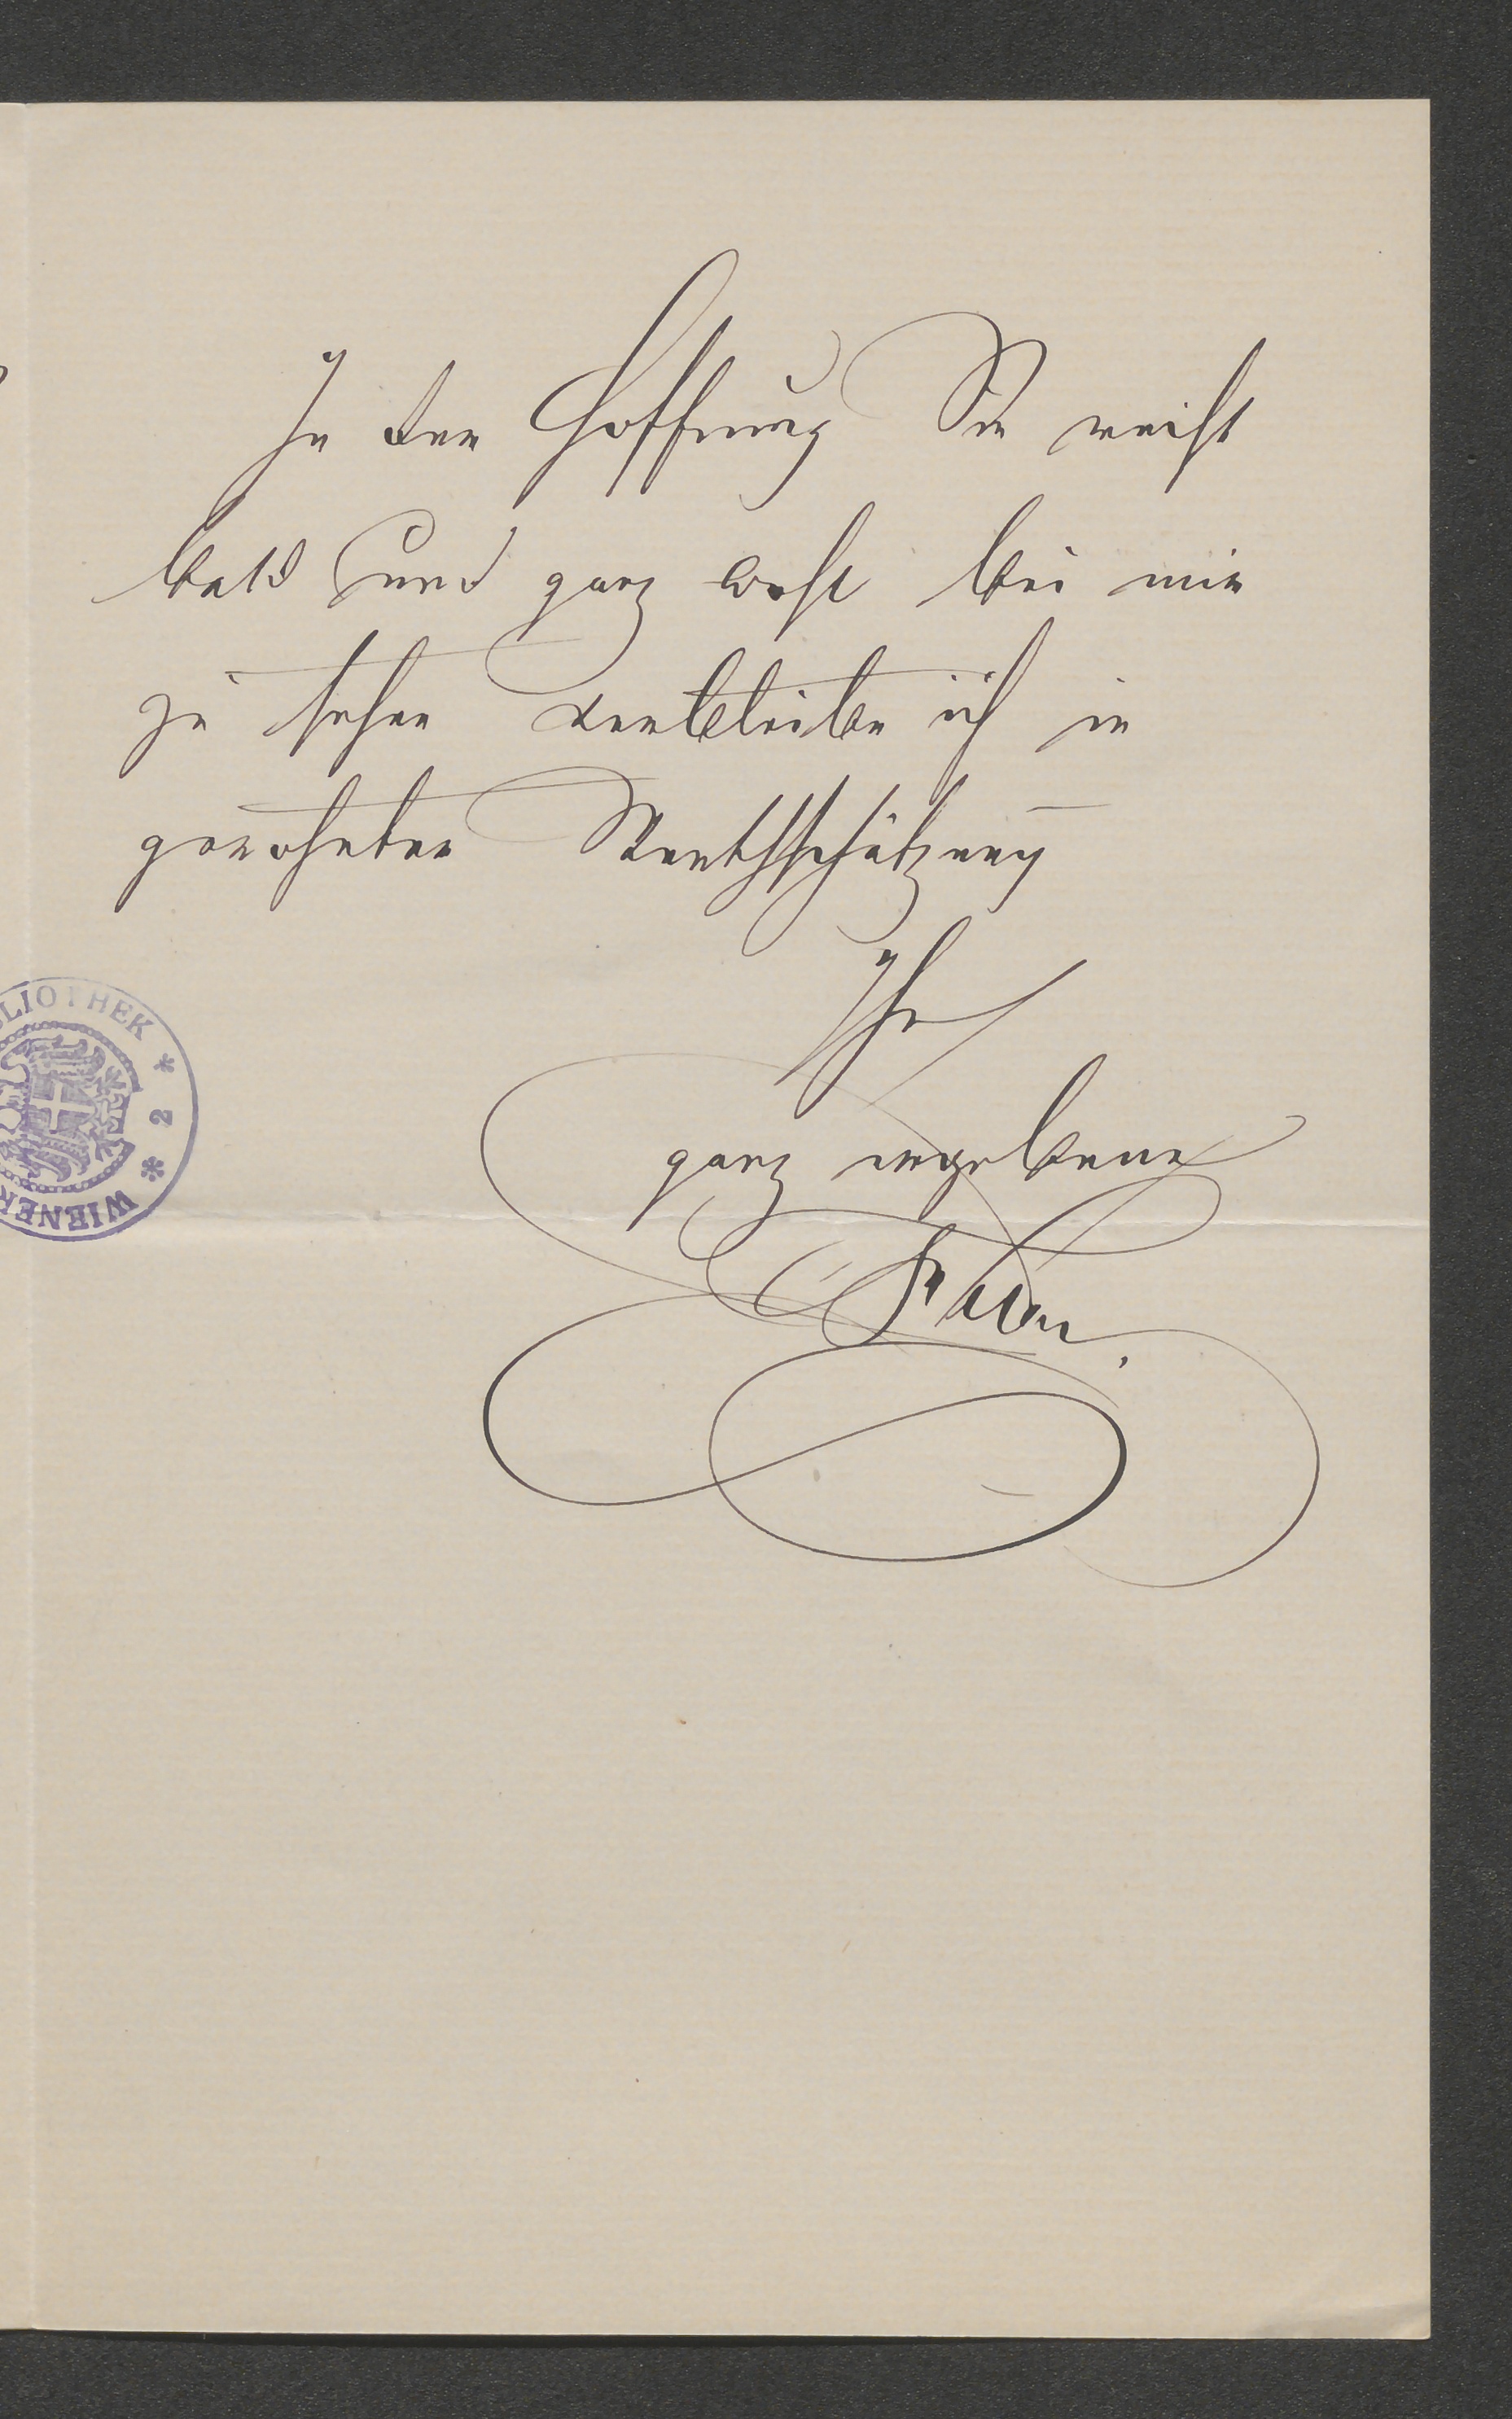 In der Hoffnung Sie recht
bald und ganz wohl bei mir
zu sehen verbleibe ich in
gewohnter Werthschätzung
Ihr
ganz ergebener
BLIOTHEK * 2 * WIENER